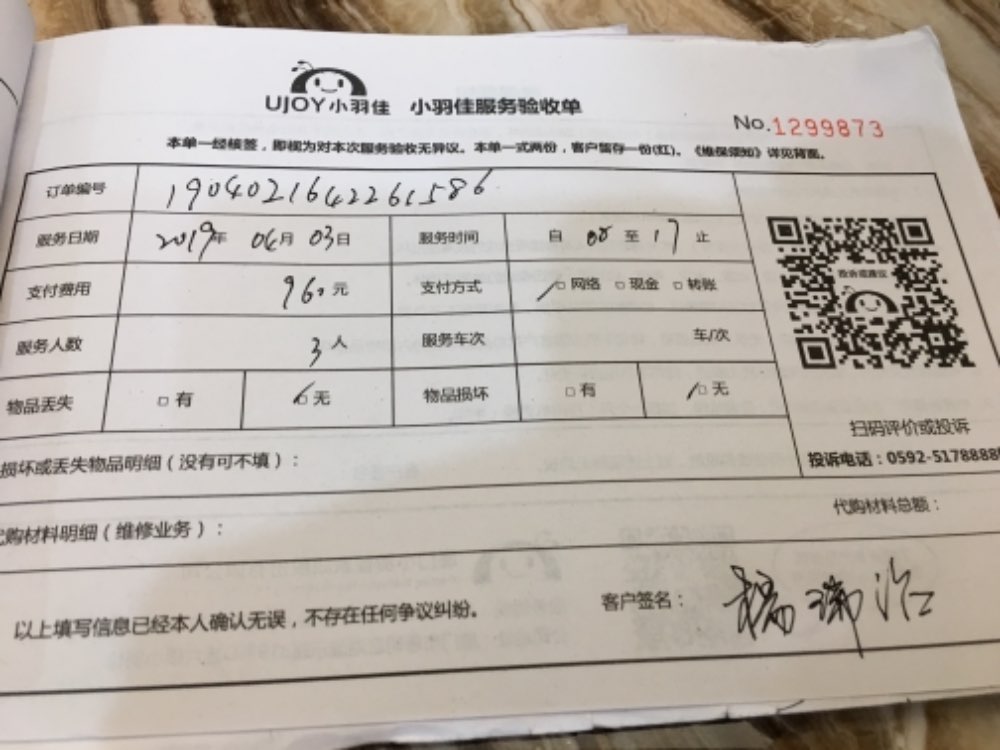 UJOY小羽佳 小羽佳服务验收单
No.1299873
本单一经核签，即视为对本次服务验收无异议。本单一式两份，客户留存一份(红)。《维保须知》详见背面。
订单编号 1904021642261586
服务日期 2019年 04月 03日 服务时间 自 08 至 17 止
支付费用 960元 支付方式 □网络 □现金 □转账
服务人数 3人 服务车次 车/次
物品丢失 □有 □无 物品损坏 □有 □无
投诉或建议
扫码评价或投诉
投诉电话：0592-5178888
损坏或丢失物品明细（没有可不填）：
代购材料明细（维修业务）： 代购材料总额：
以上填写信息已经本人确认无误，不存在任何争议纠纷。 客户签名：杨瑞治